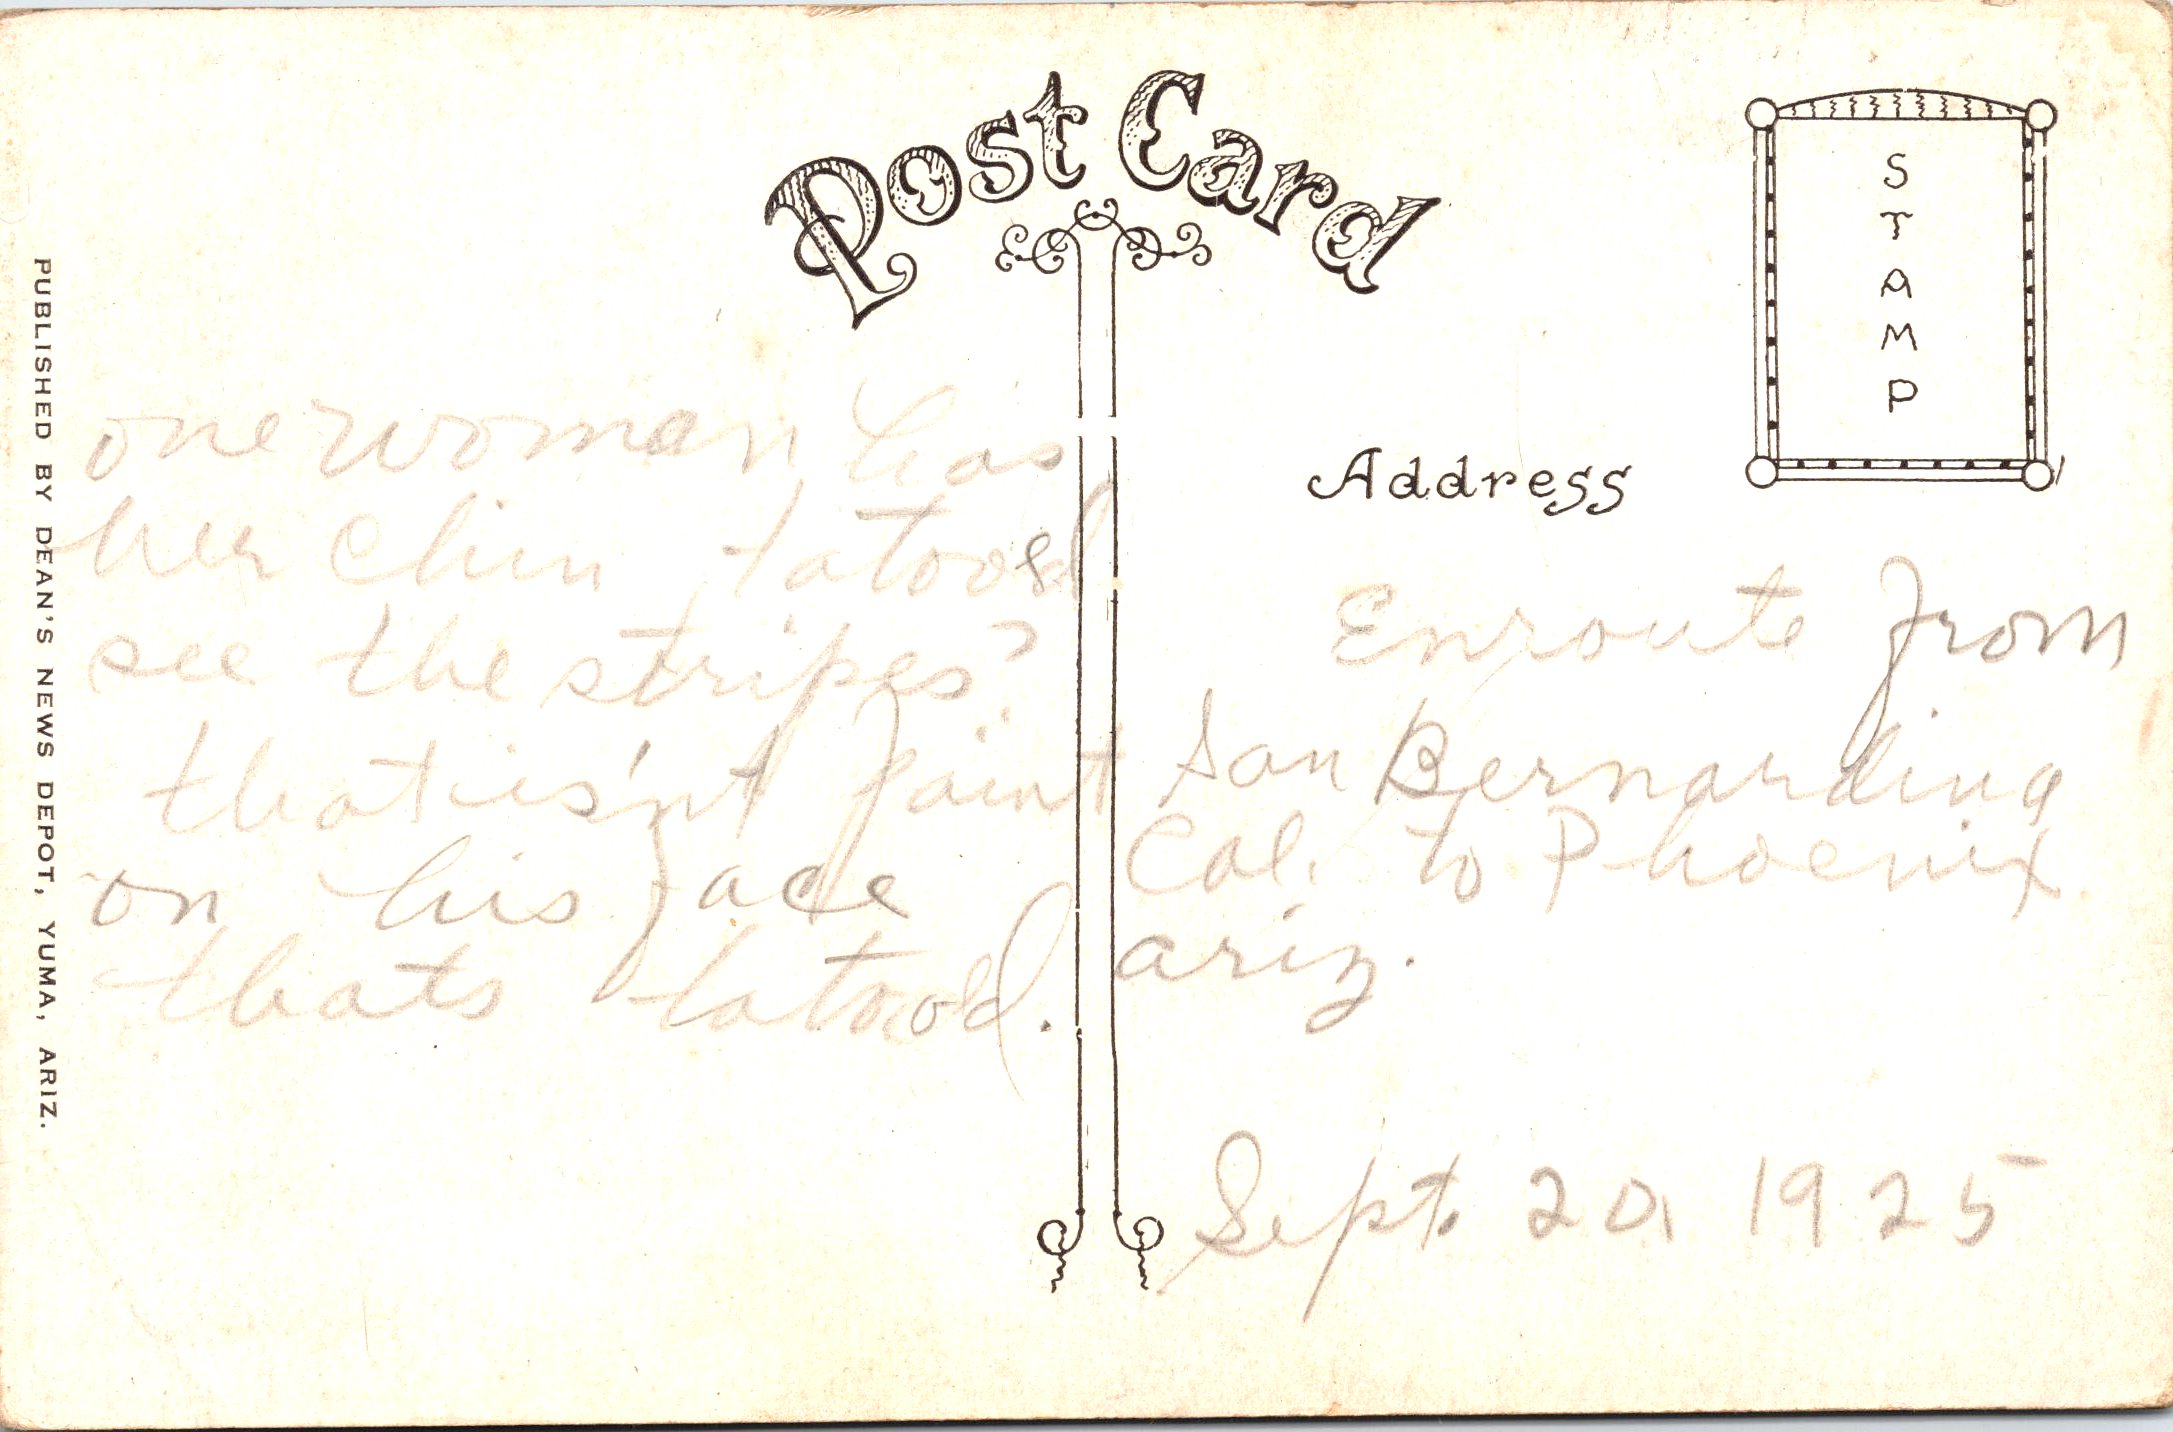 Post Card
STAMP
Address
PUBLISHED BY DEAN'S NEWS DEPOT, YUMA, ARIZ.
one woman has
her chin tatooed
see the stripes?
that is'nt paint
on his face
thats tatooed.
Enroute from
San Bernardino
Cal. to Phoenix
ariz.
Sept. 20, 1925